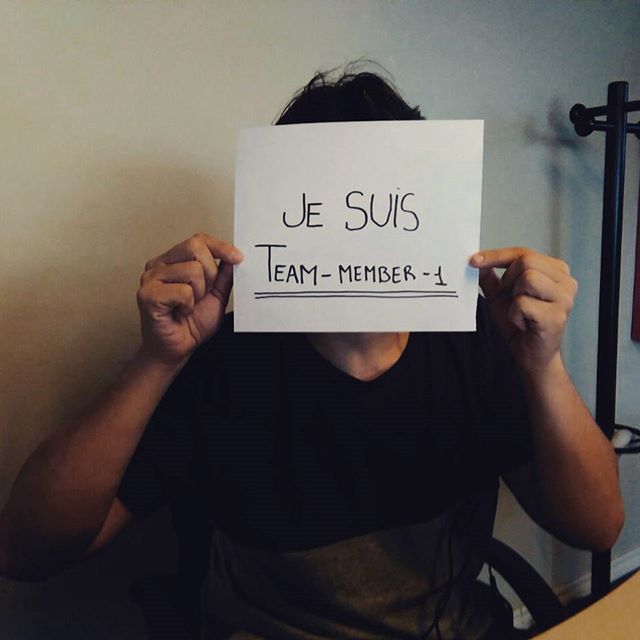 JE SUiS
TEAM-MEMBER-1